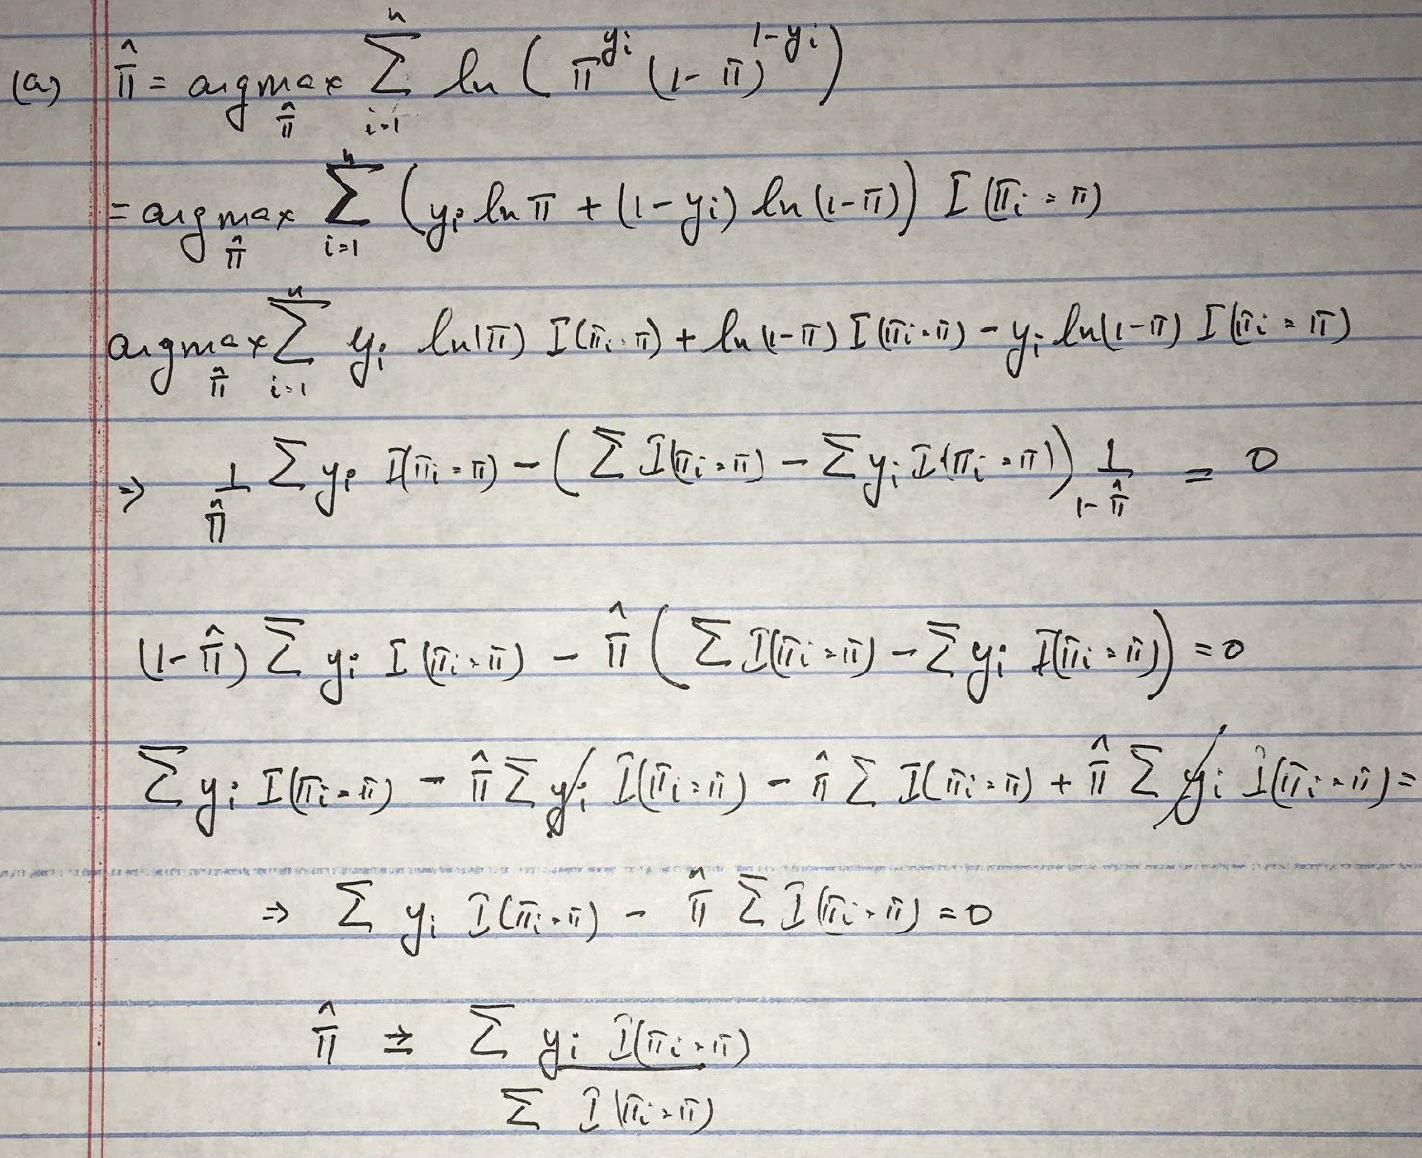 (a) π̂ = argmax_π̂ Σ_{i=1}^n ln ( π^{y_i} (1- π)^{1-y_i} )
= argmax_π̂ Σ_{i=1}^n ( y_i ln π + (1-y_i) ln (1-π) ) I (π_i = π)
argmax_π̂ Σ_{i=1}^n y_i ln(π) I(π_i = π) + ln(1-π) I(π_i = π) - y_i ln(1-π) I(π_i = π)
⇒ 1/π̂ Σ y_i I(π_i = π) - ( Σ I(π_i = π) - Σ y_i I(π_i = π) ) 1/(1-π̂) = 0
(1-π̂) Σ y_i I(π_i = π) - π̂ ( Σ I(π_i = π) - Σ y_i I(π_i = π) ) = 0
Σ y_i I(π_i = π) - π̂ Σ y_i I(π_i = π) - π̂ Σ I(π_i = π) + π̂ Σ y_i I(π_i = π) =
⇒ Σ y_i I(π_i = π) - π̂ Σ I(π_i = π) = 0
π̂ = Σ y_i I(π_i = π)
Σ I(π_i = π)